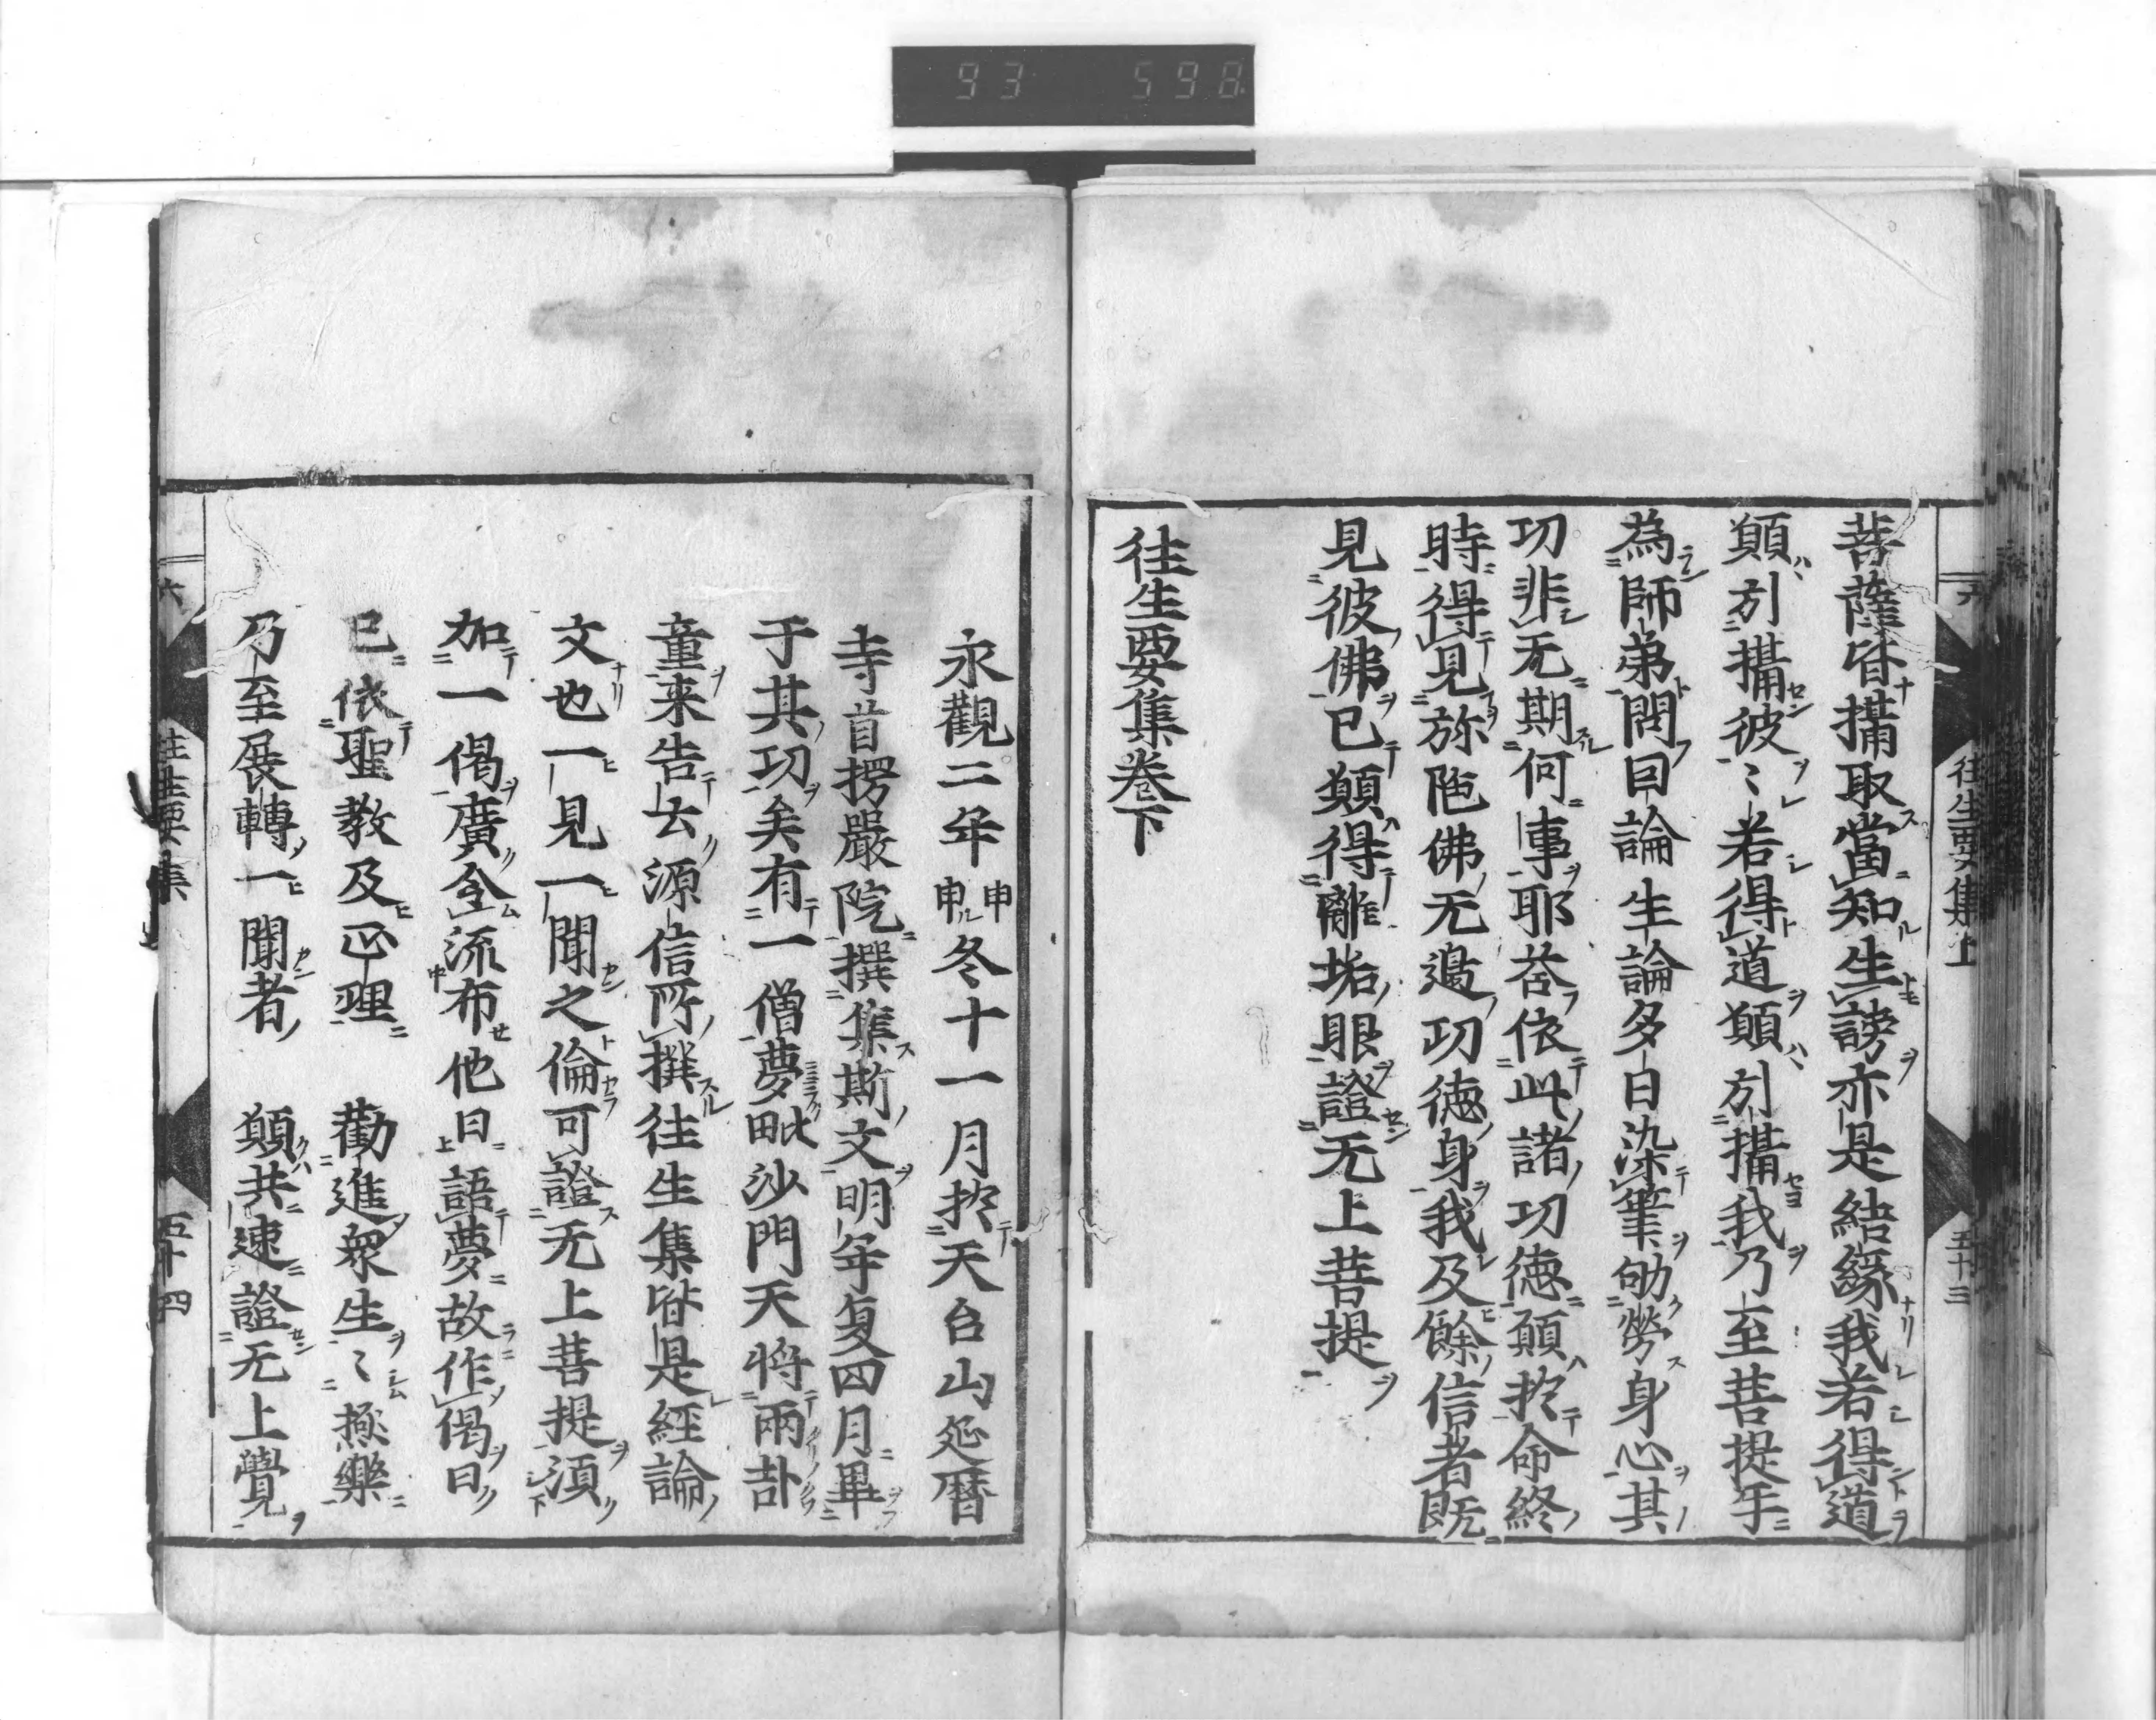 93 598
菩薩皆攝取當知生謗亦是結緣我若得道
願引攝彼〻若得道願引攝我乃至菩提手
為師弟問曰論生論多日染筆劬勞身心其
功非无期何事耶荅依此諸功德願扵命終
時得見弥陁佛无邉功徳身我及餘信者既
見彼佛已願得離垢眼證无上菩提
往生要集卷下
往生要集上
五十三
永觀二年甲申冬十一月扵天台山𨒂曆
寺首楞嚴院撰集斯文明年夏四月畢
于其功矣有一僧夢毗沙門天将兩卦
童来告云源信所撰往生集皆是經論
文也一見一聞之倫可證无上菩提須
加一偈廣令流布他日語夢故作偈曰
已依聖教及正理　勸進衆生〻極樂
乃至展轉一聞者　願共速證无上覺
六
往生要集
五十四